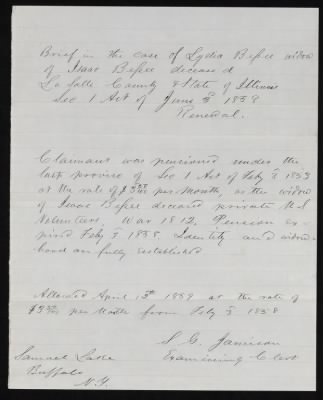 Brief in the case of Lydia Bissel widow
of Isaac Bissel deceased
La Salle County & State of Illinois
Sec 1 Act of June 3d 1858
Renewal.
Claimant was pensioned under the
last proviso of Sec 1 Act of Feby 3d 1853
at the rate of $ per Month, as the widow
of Isaac Bissel deceased private U.S
Volunteers, War 1812. Pension ex-
pired Feby 3d 1858. Identity and widow-
hood are fully established
Allowed April 13th 1859 at the rate of
per Month from Feby 3d 1858
S. G. Jamison
Examining Clerk
Samuel Lake
Buffalo
N.Y.